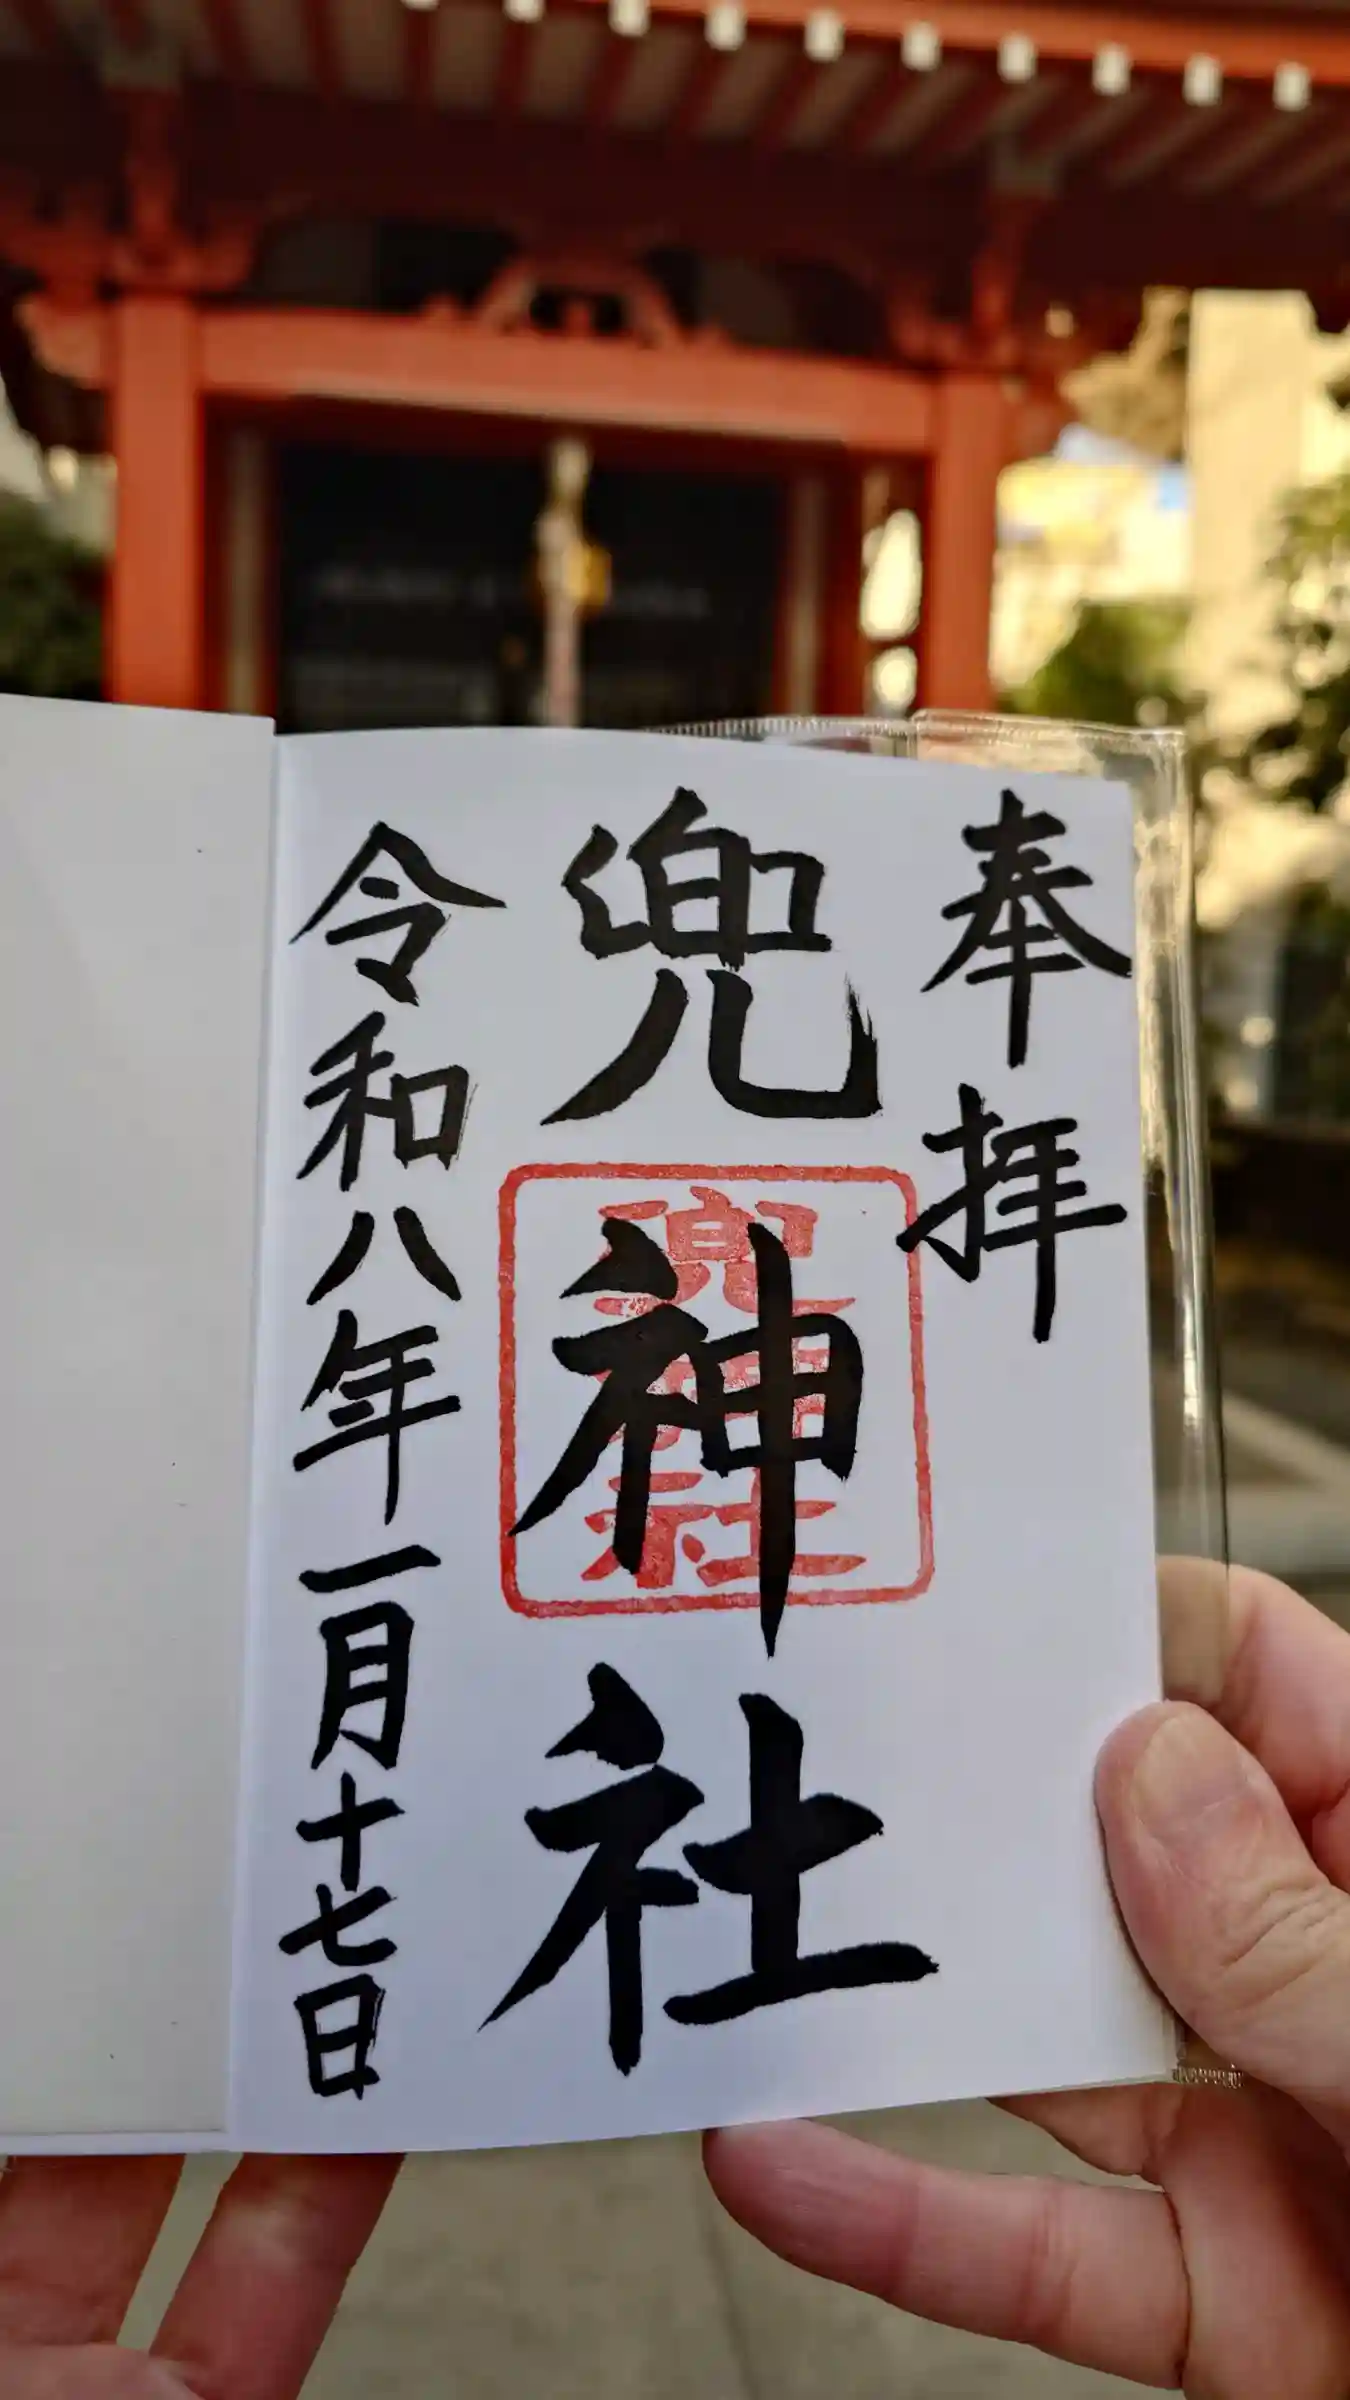 奉拝
兜神社
兜神社
令和八年一月十七日